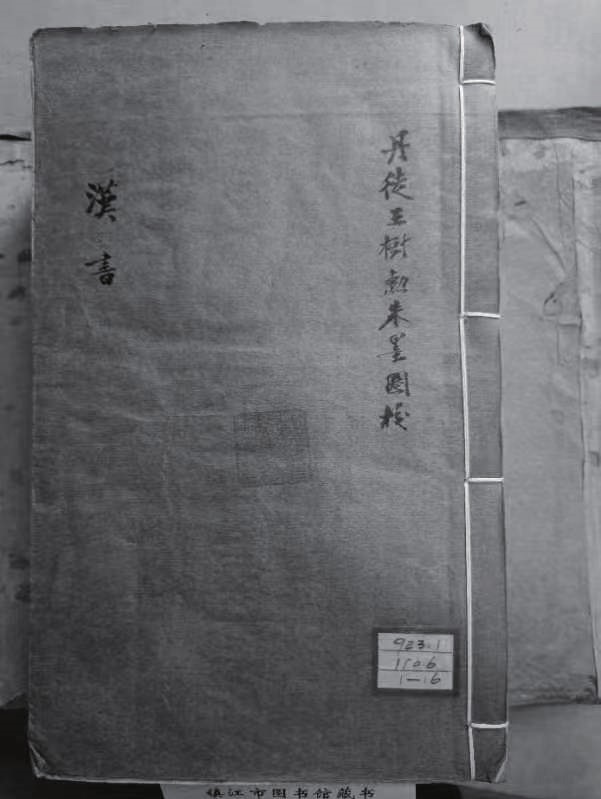 丹徒王樹勳朱墨圈校
漢書
923.1
1506
1—16
镇江市图书馆藏书